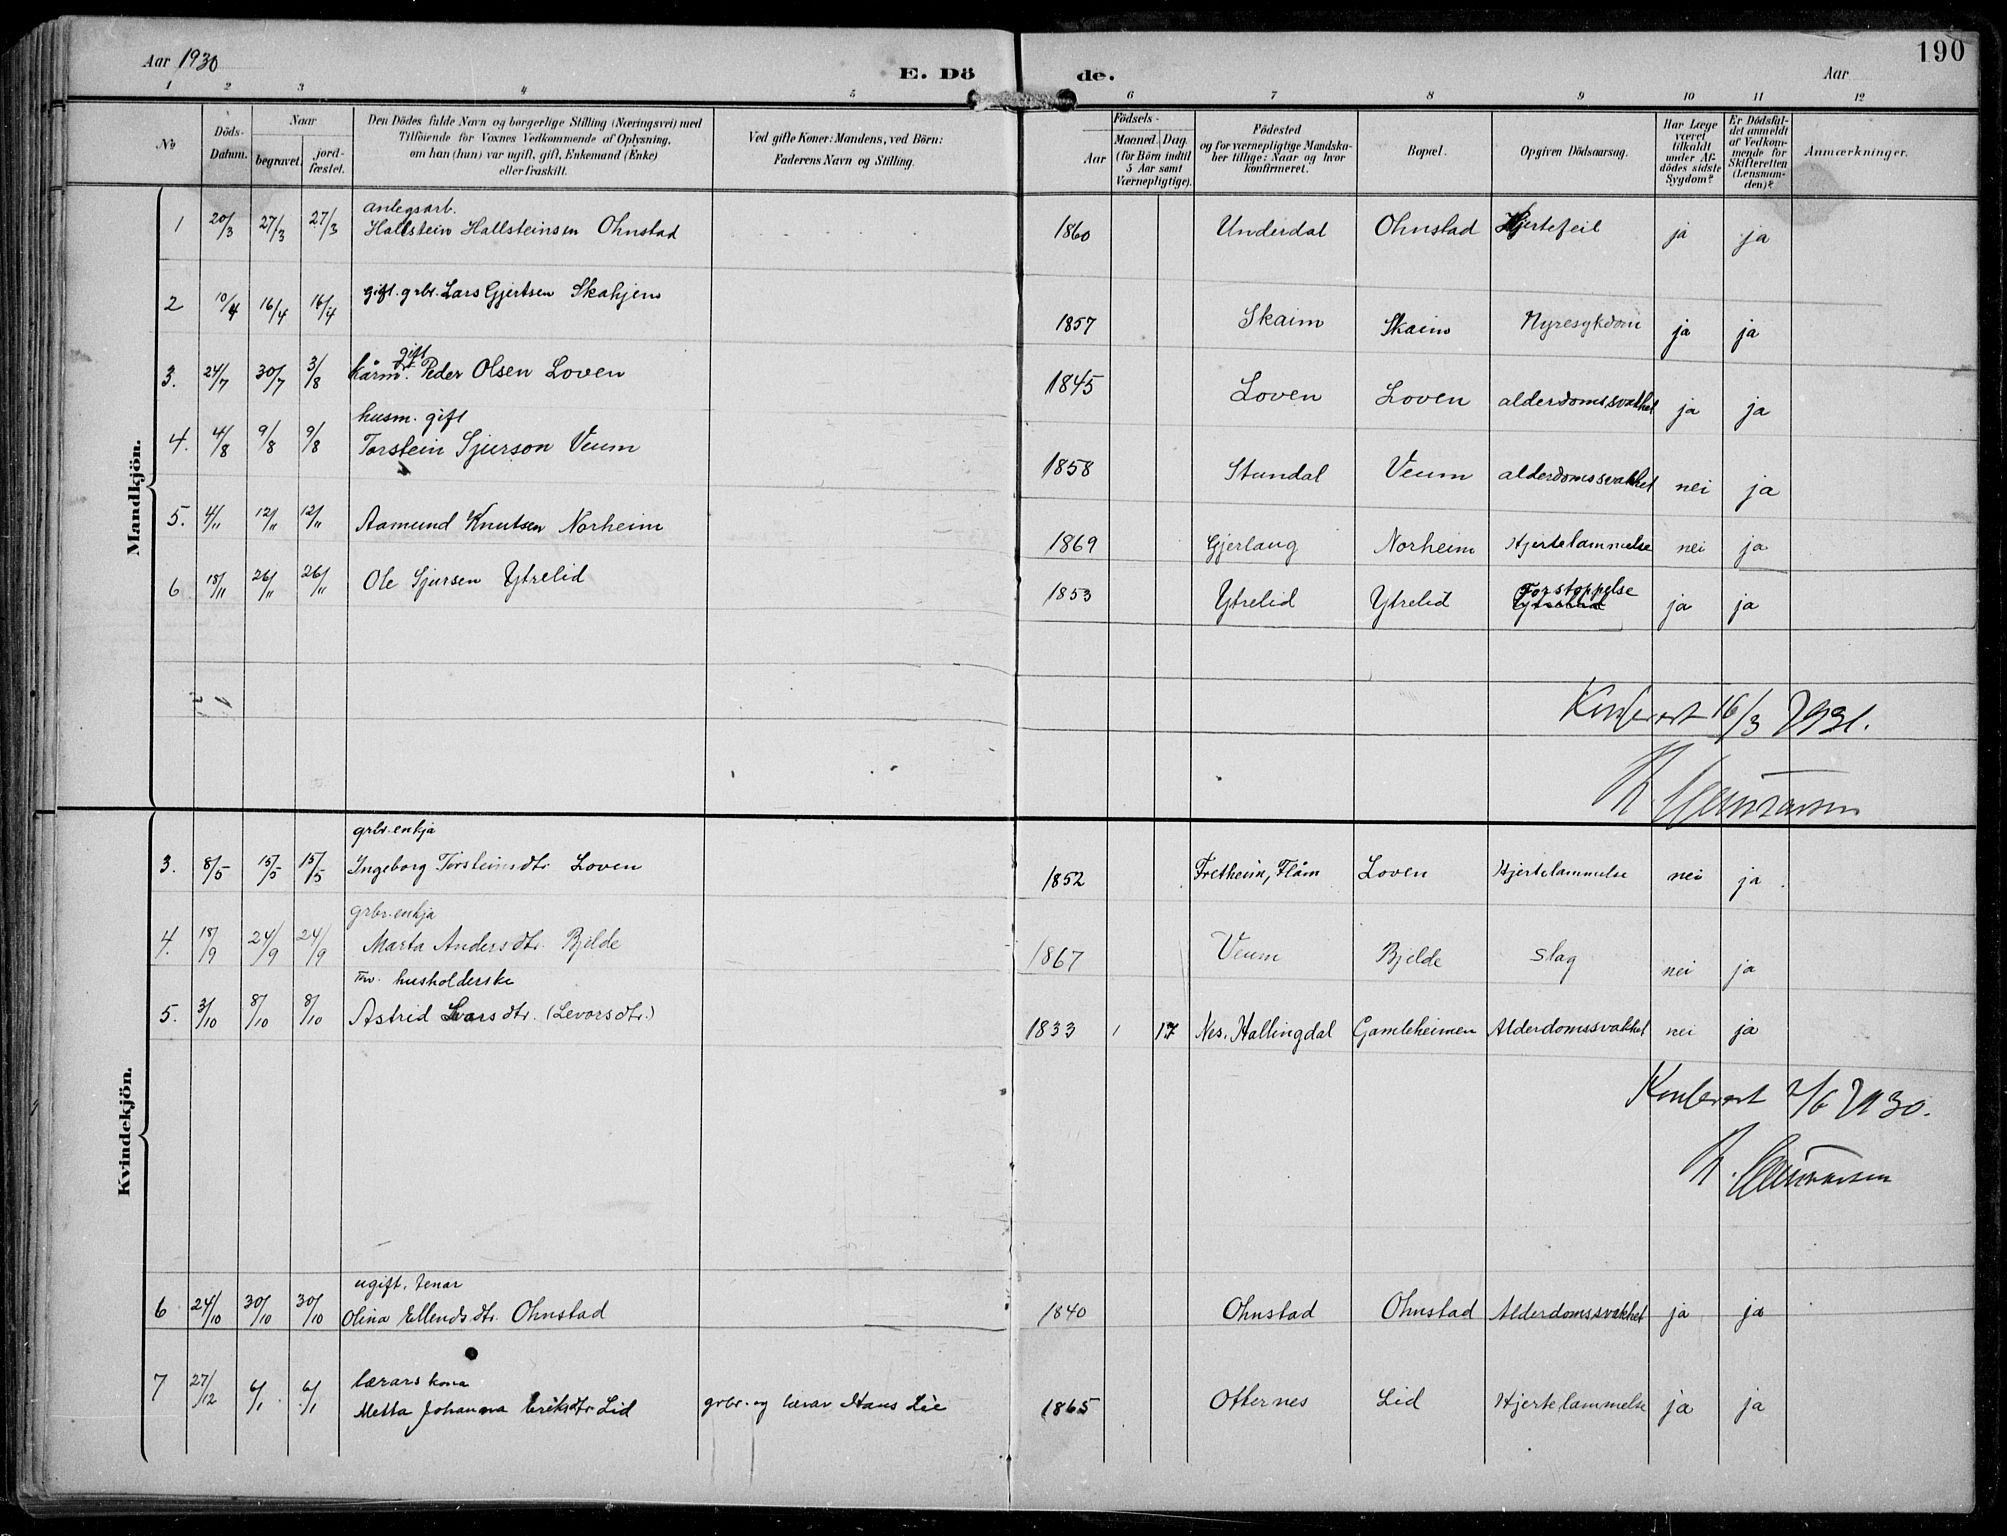 Aar 1930
E. Dö
de.
Aar
190
1 2 3 4 5 6 7 8 9 10 11 12
No
Döds-Datum.
Naar
begravet.
jord-fæstet.
Den Dödes fulde Navn og borgerlige Stilling (Næringsvei) med
Tilföiende for Voxnes Vedkommende af Oplysning,
om han (hun) var ugift, gift, Enkemand (Enke)
eller fraskilt.
Ved gifte Koner: Mandens, ved Börn:
Faderens Navn og Stilling.
Födsels-
Aar
Maaned. Dag.
(for Börn indtil
5 Aar samt
Værnepligtige).
Födested
og for værnepligtige Mandska-
ber tillige: Naar og hvor
konfirmeret.
Bopæl.
Opgiven Dödsaarsag.
Har Læge
været
tilkaldt
under Af-
dödes sidste
Sygdom?
Er Dödsfal-
det anmeldt
af Vedkom-
mende for
Skifteretten
(Lensman-
den)?
Anmærkninger.
Mandkjön.
anlegsarb.
1 20/3 27/3 27/3 Hallstein Hallsteinsen Ohnstad 1860 Underdal Ohnstad Hjertefeil ja ja
2 10/4 16/4 16/4 gift. grbr. Lars Gjertsen Skahjem 1857 Skaim Skaim Nyresykdom ja ja
gift
3. 24/7 30/7 3/8 kårm. Peder Olsen Loven 1845 Loven Loven alderdomssvakhet ja ja
husm. gift
4. 4/8 9/8 9/8 Torstein Sjurson Veum 1858 Stundal Veum alderdomssvakhet nei ja
5. 4/11 12/11 12/11 Aamund Knutsen Norheim 1869 Gjerlaug Norheim Hjertelammelse nei ja
6 18/11 26/11 26/11 Ole Sjursen Ytrelid 1853 Ytrelid Ytrelid Forstoppelse ja ja
Konferert 16/3 1931.
Kvindekjön.
grbr. enkja
3. 8/5 15/5 15/5 Ingeborg Torsteinsdtr. Loven 1852 Fretheim, Flåm Loven Hjertelammelse nei ja
grbr. enkja
4. 18/9 24/9 24/9 Marta Andersdtr. Bjelde 1867 Veum Bjelde Slag nei ja
husholderske
5. 3/10 8/10 8/10 Astrid Ivarsdtr. (Levorsdtr.) 1833 1 17 Nes. Hallingdal Gamleheimen Alderdomssvakhet nei ja
Konferert 2/6 1930.
ugift. tenar
6 24/10 30/10 30/10 Olina Ellendsdtr. Ohnstad 1840 Ohnstad Ohnstad Alderdomssvakhet ja ja
lærarskona
7 27/12 6/1 6/1 Metta Johanna Eriksdtr Lid grbr. og lærar Hans Lie 1865 Otternes Lid Hjertelammelse ja ja